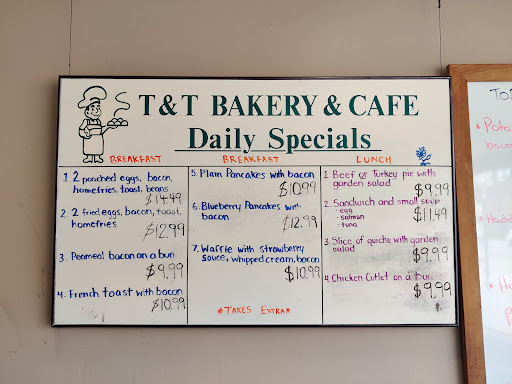 T&T BAKERY & CAFE
Daily Specials
BREAKFAST
1. 2 poached eggs, bacon,
homefries, toast, beans
$14.49
2. 2 fried eggs, bacon, toast,
homefries
$12.99
3. Peameal bacon on a bun
$9.99
4. French toast with bacon
$10.99
BREAKFAST
5. Plain Pancakes with bacon
$10.99
6. Blueberry Pancakes with
bacon
$12.99
7. Waffle with strawberry
sauce, whipped cream, bacon
$10.99
*TAXES EXTRA*
LUNCH
1. Beef or Turkey pie with
garden salad
$9.99
2. Sandwich and small soup
- egg
- salmon
- tuna
$11.49
3. Slice of quiche with garden
salad
$9.99
4. Chicken Cutlet on a bun
$9.99